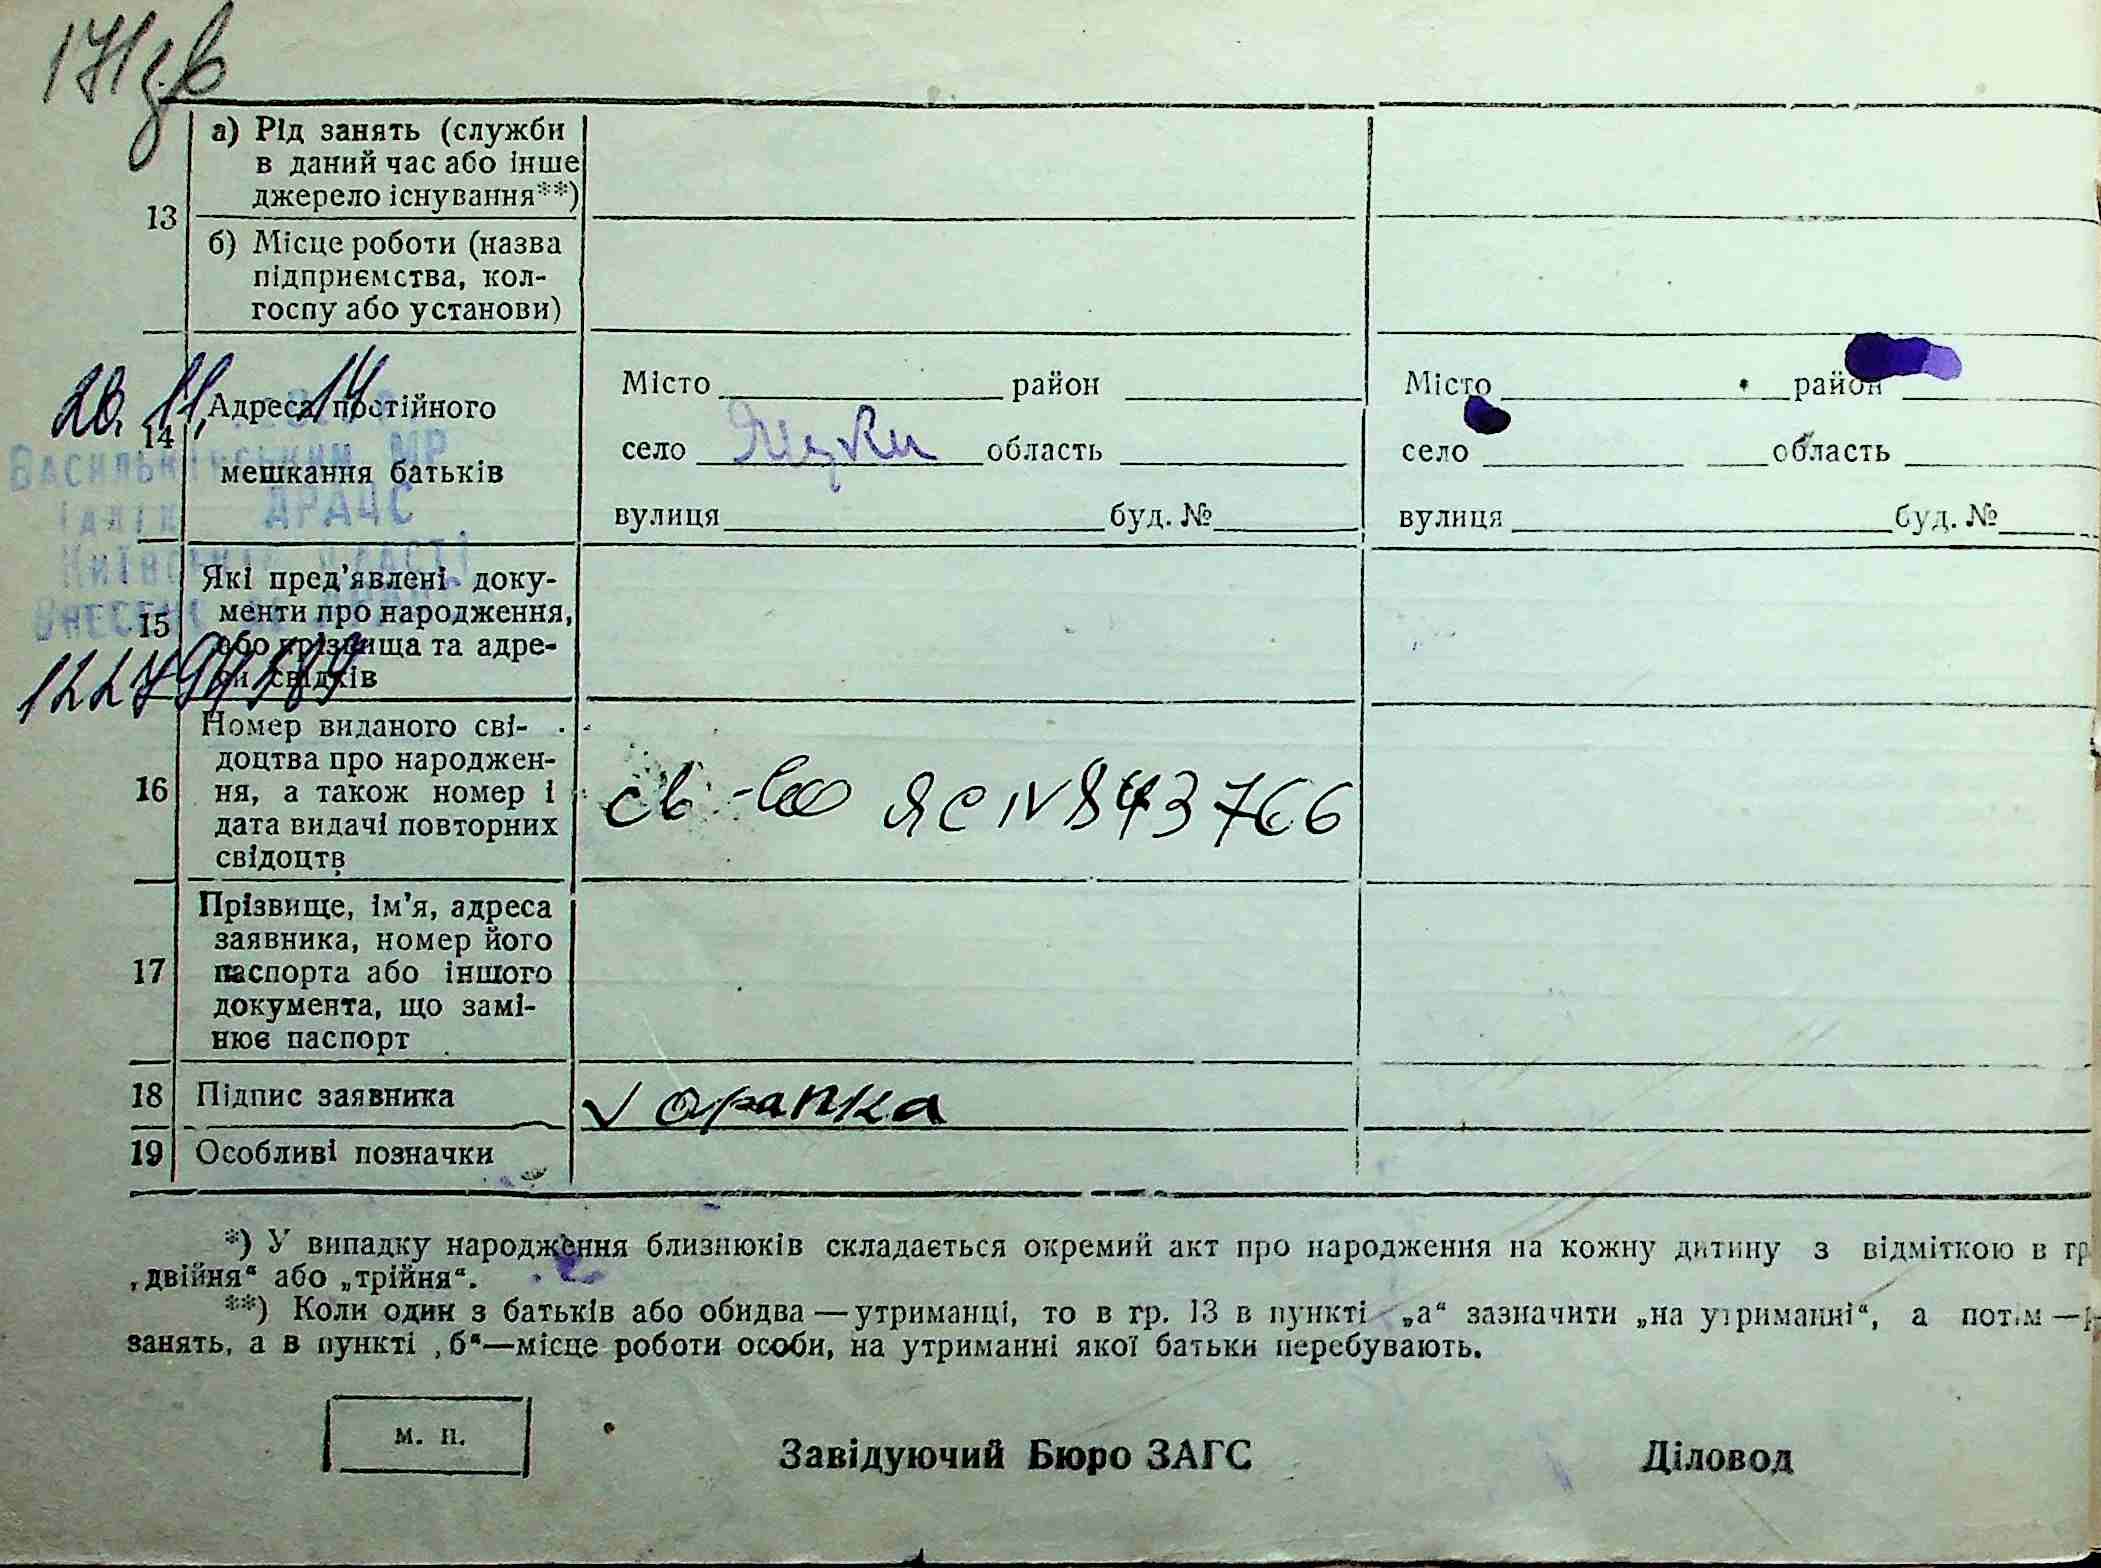 171зв
а) Рід занять (служби
в даний час або інше
джерело існування**)
13
б) Місце роботи (назва
підприємства, кол-
госпу або установи)
20. 11. 14
14 Адреса постійного
мешкання батьків
Місто район
село Яцки область
вулиця буд. №
Місто район
село область
вулиця буд. №
Васильківським МР
АРАЦС
15 Які пред'явлені доку-
менти про народження,
або прізвища та адре-
си свідків
16 Номер виданого сві-
доцтва про народжен-
ня, а також номер і
дата видачі повторних
свідоцтв
св-во ЯС № 843766
17 Прізвище, ім'я, адреса
заявника, номер його
паспорта або іншого
документа, що замі-
нює паспорт
18 Підпис заявника
19 Особливі позначки
*) У випадку народження близнюків складається окремий акт про народження на кожну дитину з відміткою в гр
„двійня“ або „трійня“.
**) Коли один з батьків або обидва — утриманці, то в гр. 13 в пункті „а“ зазначити „на утриманні“, а потім —
занять, а в пункті „б“—місце роботи особи, на утриманні якої батьки перебувають.
м. п.
Завідуючий Бюро ЗАГС Діловод